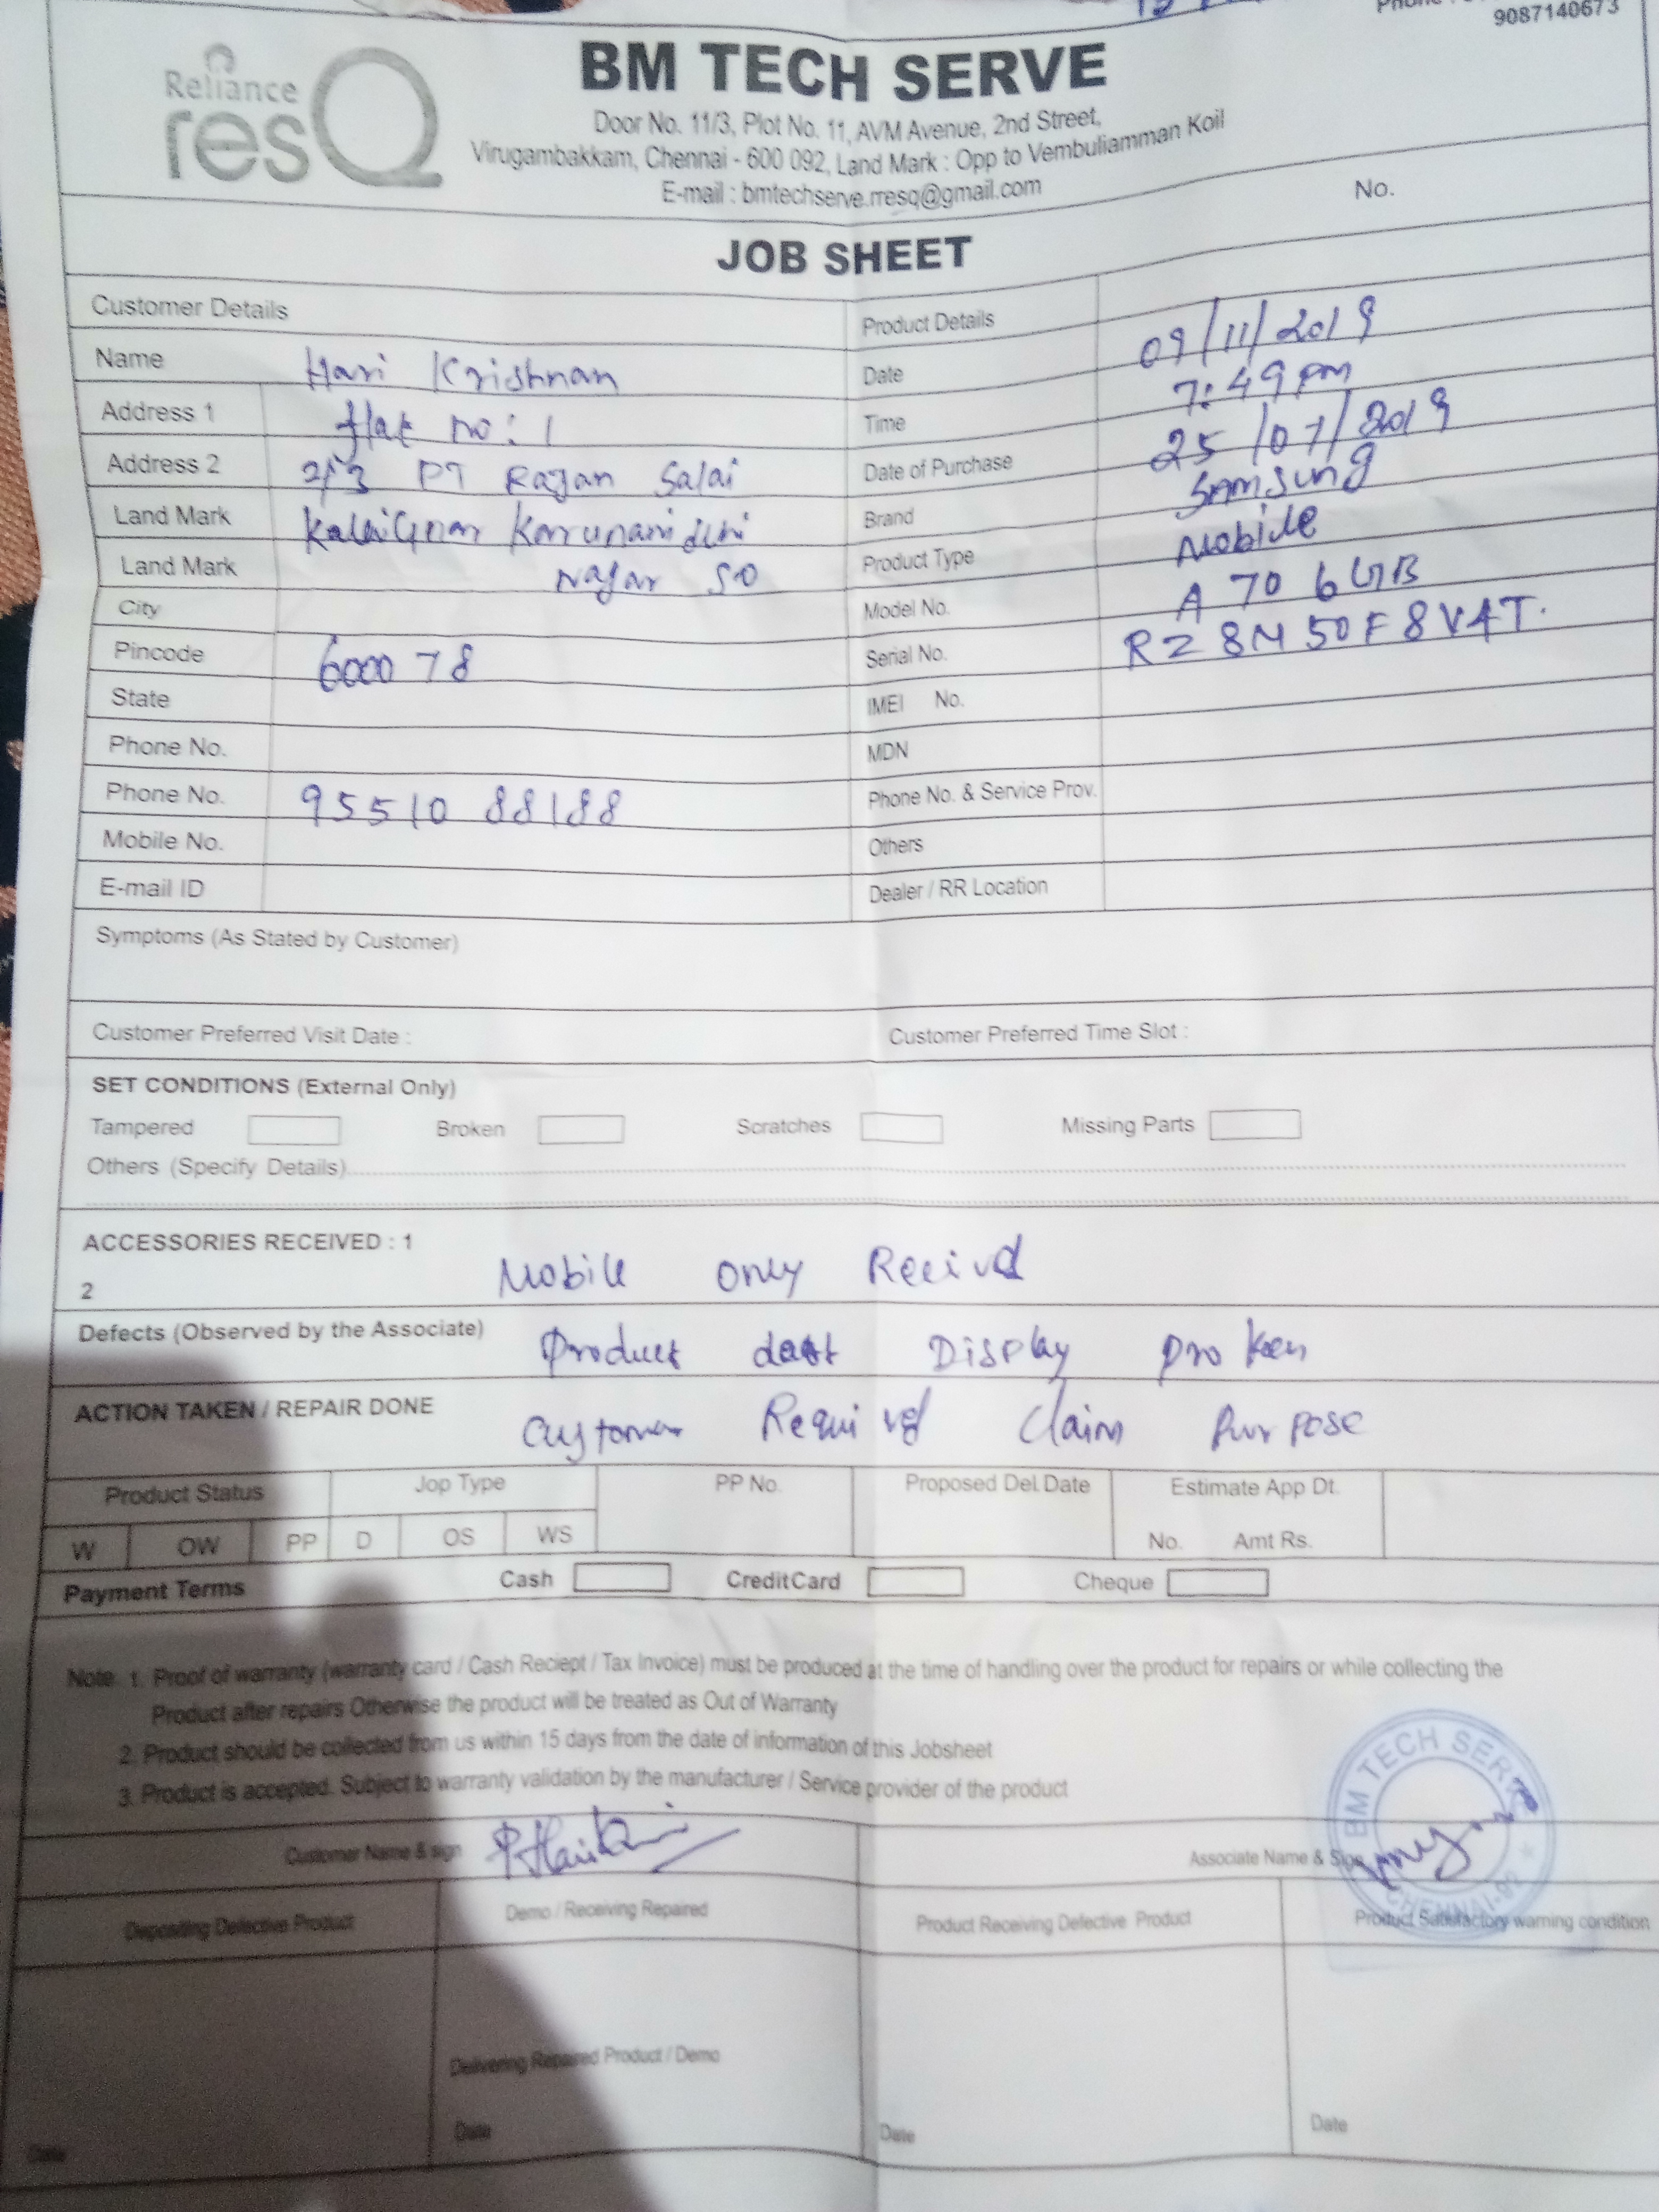 9087140673
Reliance
resQ
BM TECH SERVE
Door No. 11/3, Plot No. 11, AVM Avenue, 2nd Street,
Virugambakkam, Chennai - 600 092, Land Mark : Opp to Vembuliamman Koil
E-mail : bmtechserve.rresq@gmail.com
No.
JOB SHEET
Customer Details
Product Details
Name Hari Krishnan
Date 09/11/2019
Address 1 flat no: 1
Time 7:49 pm
Address 2 2/3 PT Rajan Salai
Date of Purchase 25/07/2019
Land Mark Karunanidhi
Brand Samsung
Land Mark Nagar SO
Product Type Mobile
City
Model No. A 70 6GB
Pincode 600078
Serial No. RZ8M50F8V4T.
State
IMEI No.
Phone No.
MDN
Phone No. 95510 88188
Phone No. & Service Prov.
Mobile No.
Others
E-mail ID
Dealer / RR Location
Symptoms (As Stated by Customer)
Customer Preferred Visit Date :
Customer Preferred Time Slot :
SET CONDITIONS (External Only)
Tampered Broken Scratches Missing Parts
Others (Specify Details)
ACCESSORIES RECEIVED : 1
2 Mobile only Recivd
Defects (Observed by the Associate) Product Display Broken
ACTION TAKEN / REPAIR DONE Customer Claim Purpose
Product Status Jop Type PP No. Proposed Del.Date Estimate App Dt.
W OW PP D OS WS No. Amt Rs.
Payment Terms Cash CreditCard Cheque
Note. 1. Proof of warranty (warranty card / Cash Reciept / Tax Invoice) must be produced at the time of handling over the product for repairs or while collecting the
Product after repairs Otherwise the product will be treated as Out of Warranty
2. Product should be collected from us within 15 days from the date of information of this Jobsheet
3. Product is accepted. Subject to warranty validation by the manufacturer / Service provider of the product
BM TECH SERVE
CHENNAI-92
Customer Name & sign
Associate Name & Sign
Depositing Defective Product
Demo / Receiving Repaired
Product Receiving Defective Product
Product Satisfactory warning condition
Delivering Repaired Product / Demo
Date
Date
Date
Date